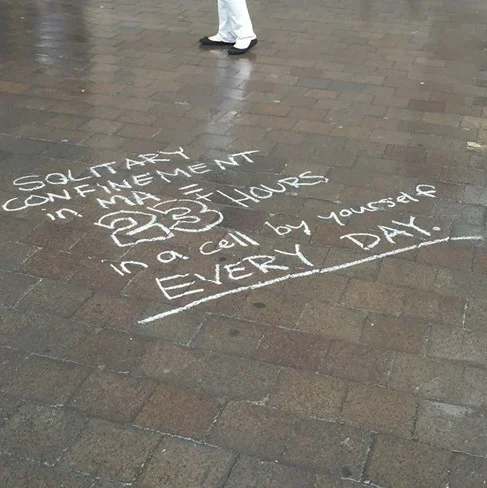 SOLITARY
CONFINEMENT
in MA =
23 HOURS
in a cell by yourself
EVERY DAY.